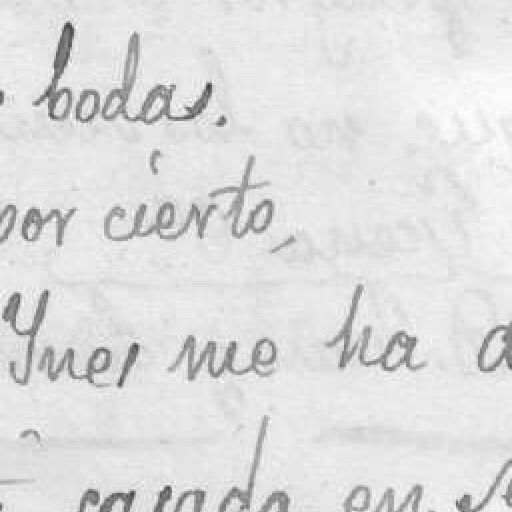 bodas.
por cierto,
Ynes me ha
casada en